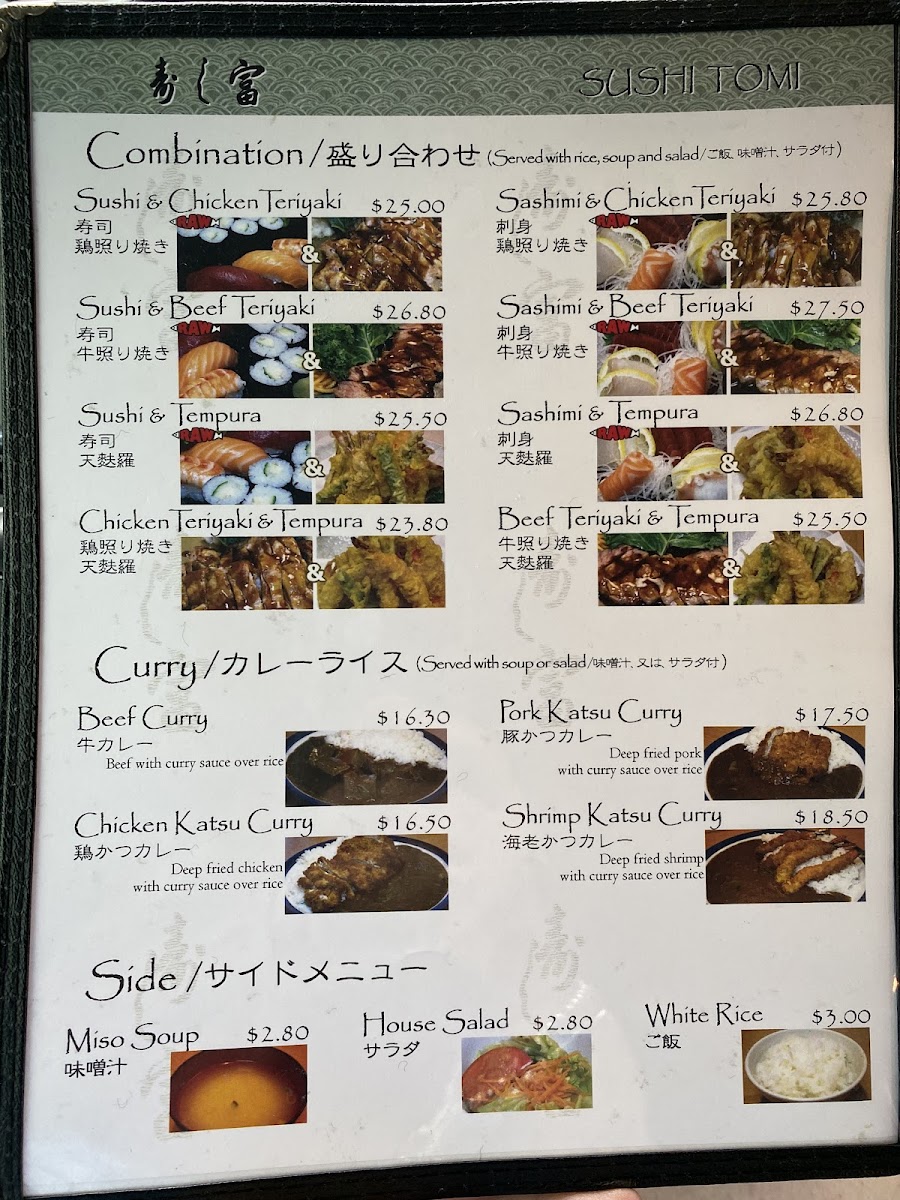 寿し富
SUSHI TOMI
Combination/盛り合わせ (Served with rice, soup and salad/ご飯、味噌汁、サラダ付)
Sushi & Chicken Teriyaki $25.00
寿司
鶏照り焼き
RAW
&
Sashimi & Chicken Teriyaki $25.80
刺身
鶏照り焼き
RAW
&
Sushi & Beef Teriyaki $26.80
寿司
牛照り焼き
RAW
&
Sashimi & Beef Teriyaki $27.50
刺身
牛照り焼き
RAW
&
Sushi & Tempura $25.50
寿司
天麩羅
RAW
&
Sashimi & Tempura $26.80
刺身
天麩羅
RAW
&
Chicken Teriyaki & Tempura $23.80
鶏照り焼き
天麩羅
&
Beef Teriyaki & Tempura $25.50
牛照り焼き
天麩羅
&
Curry/カレーライス (Served with soup or salad/味噌汁、又は、サラダ付)
Beef Curry $16.30
牛カレー
Beef with curry sauce over rice
Pork Katsu Curry $17.50
豚かつカレー
Deep fried pork
with curry sauce over rice
Chicken Katsu Curry $16.50
鶏かつカレー
Deep fried chicken
with curry sauce over rice
Shrimp Katsu Curry $18.50
海老かつカレー
Deep fried shrimp
with curry sauce over rice
Side/サイドメニュー
Miso Soup $2.80
味噌汁
House Salad $2.80
サラダ
White Rice $3.00
ご飯